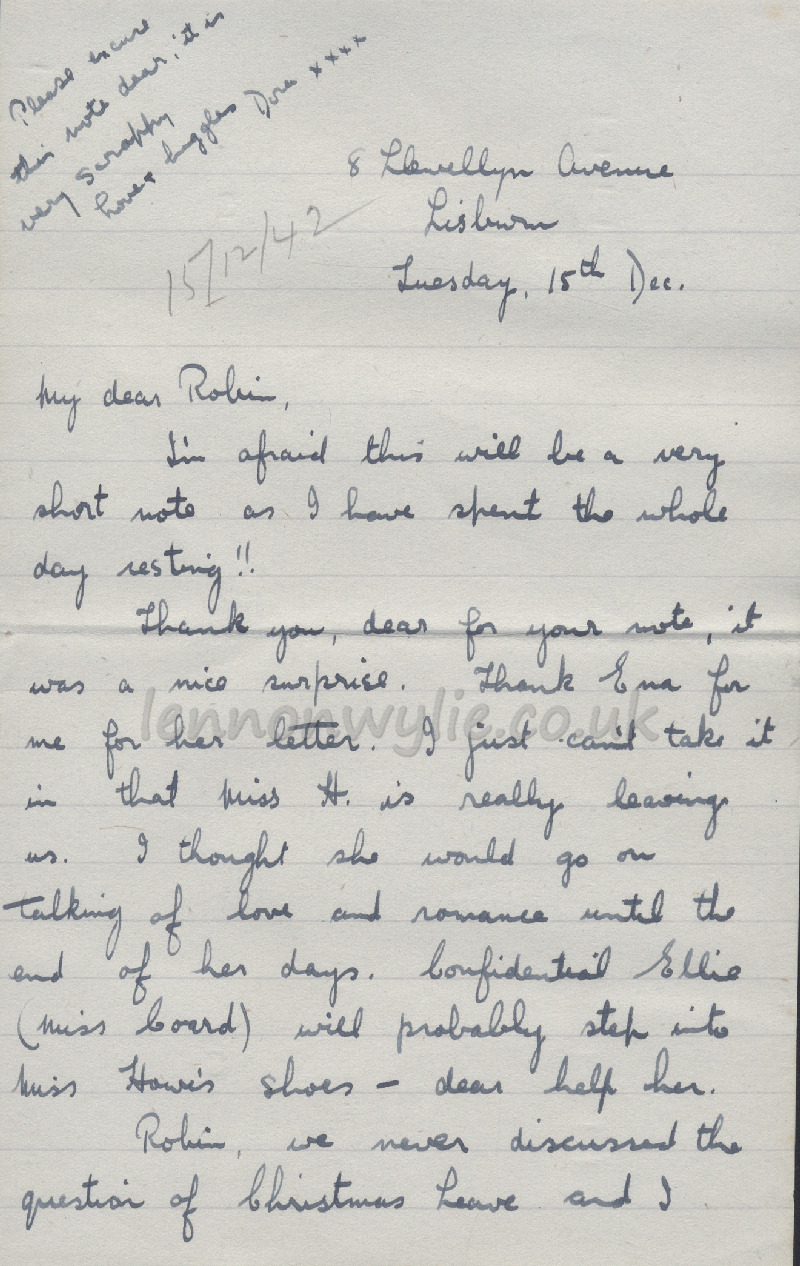 Please excuse
this note dear, it is
very scrappy
Love & huggles Dora xxxx
8 Llewellyn Avenue
Lisburn
Tuesday, 15th Dec.
15/12/42
My dear Robin,
I'm afraid this will be a very
short note as I have spent the whole
day resting!!
Thank you, dear for your note, it
was a nice surprise. Thank Ena for
me for her letter. I just can't take it
in that Miss H. is really leaving
us. I thought she would go on
talking of love and romance until the
end of her days. Confidential Ellie
(Miss Coard) will probably step into
Miss Howe's shoes - dear help her.
Robin, we never discussed the
question of Christmas Leave and I
lennonwylie.co.uk